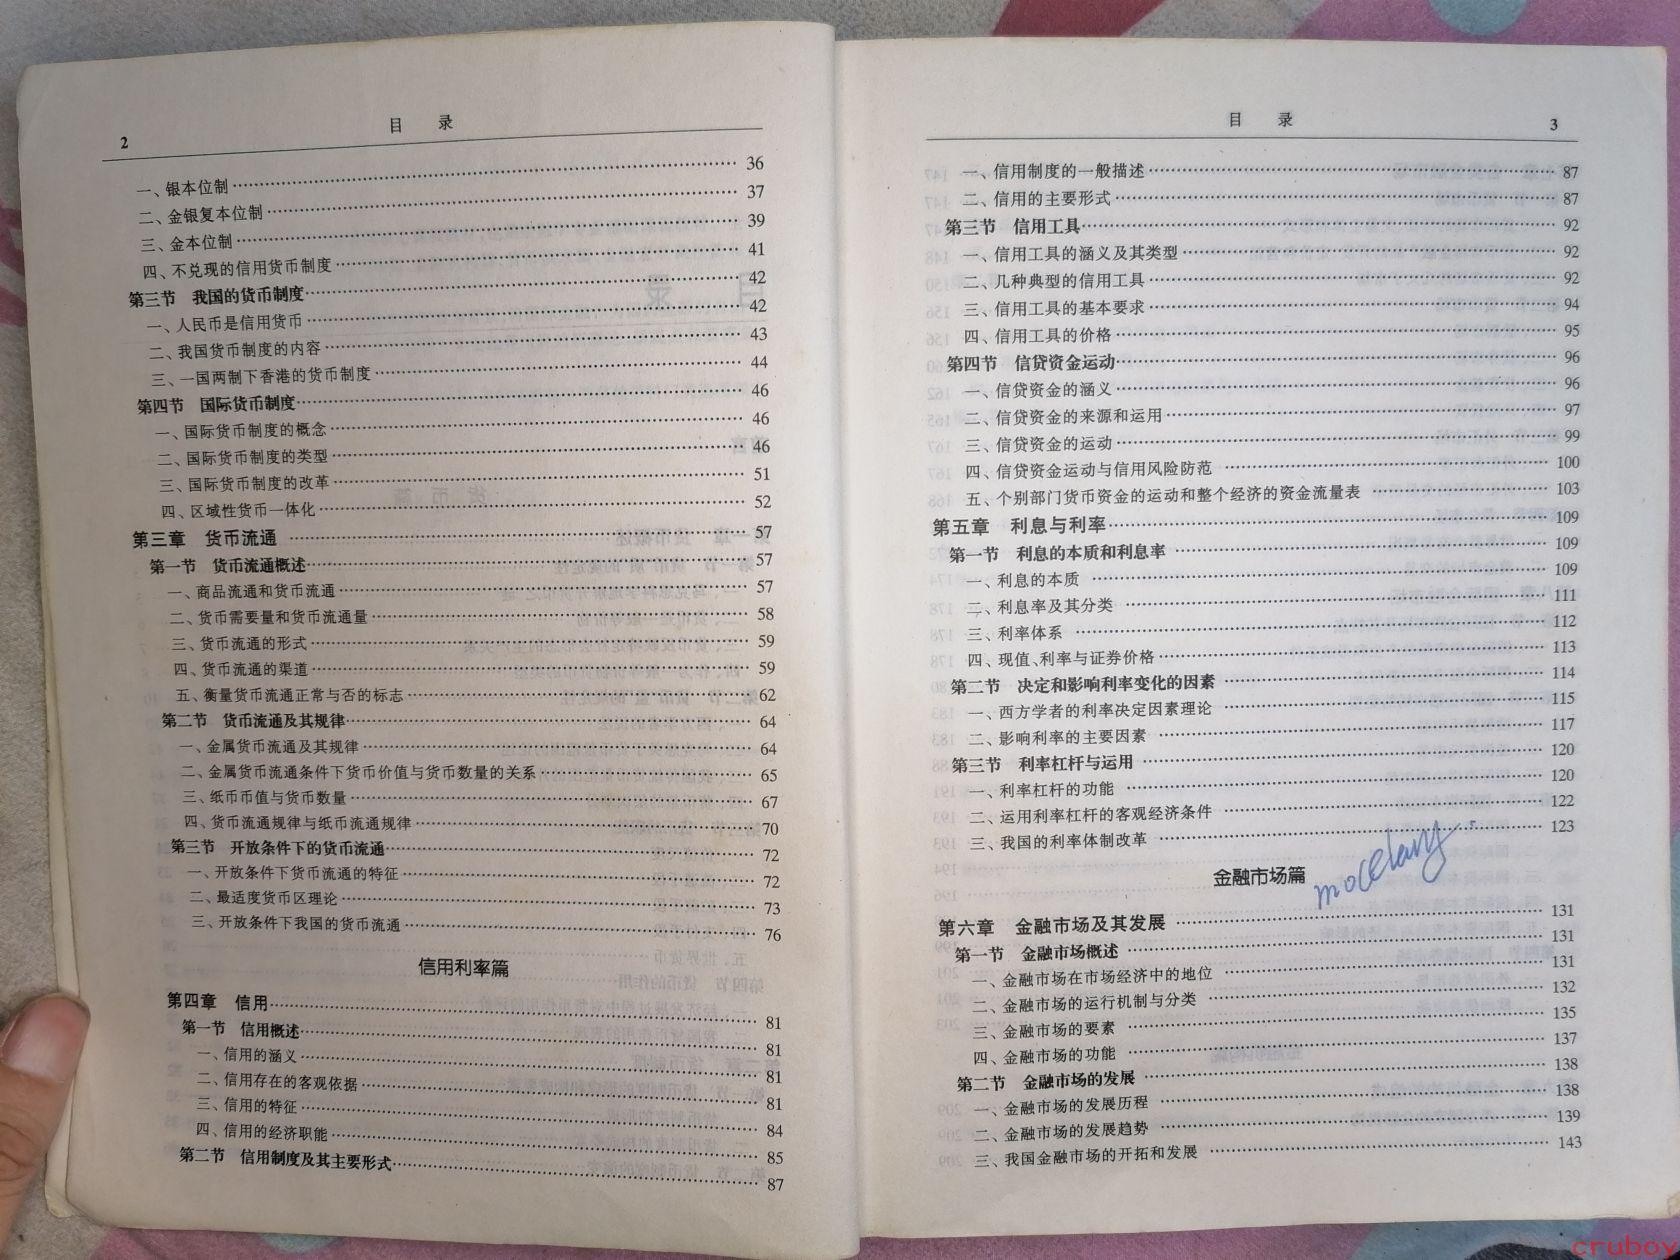 2
目 录
一、银本位制 36
二、金银复本位制 37
三、金本位制 39
四、不兑现的信用货币制度 41
第三节 我国的货币制度 42
一、人民币是信用货币 42
二、我国货币制度的内容 43
三、一国两制下香港的货币制度 44
第四节 国际货币制度 46
一、国际货币制度的概念 46
二、国际货币制度的类型 46
三、国际货币制度的改革 51
四、区域性货币一体化 52
第三章 货币流通 57
第一节 货币流通概述 57
一、商品流通和货币流通 57
二、货币需要量和货币流通量 58
三、货币流通的形式 59
四、货币流通的渠道 59
五、衡量货币流通正常与否的标志 62
第二节 货币流通及其规律 64
一、金属货币流通及其规律 64
二、金属货币流通条件下货币价值与货币数量的关系 65
三、纸币币值与货币数量 67
四、货币流通规律与纸币流通规律 70
第三节 开放条件下的货币流通 72
一、开放条件下货币流通的特征 72
二、最适度货币区理论 73
三、开放条件下我国的货币流通 76
信用利率篇
第四章 信用 81
第一节 信用概述 81
一、信用的涵义 81
二、信用存在的客观依据 81
三、信用的特征 84
四、信用的经济职能 85
第二节 信用制度及其主要形式 87
目 录
3
一、信用制度的一般描述 87
二、信用的主要形式 87
第三节 信用工具 92
一、信用工具的涵义及其类型 92
二、几种典型的信用工具 92
三、信用工具的基本要求 94
四、信用工具的价格 95
第四节 信贷资金运动 96
一、信贷资金的涵义 96
二、信贷资金的来源和运用 97
三、信贷资金的运动 99
四、信贷资金运动与信用风险防范 100
五、个别部门货币资金的运动和整个经济的资金流量表 103
第五章 利息与利率 109
第一节 利息的本质和利息率 109
一、利息的本质 109
二、利息率及其分类 111
三、利率体系 112
四、现值、利率与证券价格 113
第二节 决定和影响利率变化的因素 114
一、西方学者的利率决定因素理论 115
二、影响利率的主要因素 117
第三节 利率杠杆与运用 120
一、利率杠杆的功能 120
二、运用利率杠杆的客观经济条件 122
三、我国的利率体制改革 123
金融市场篇
第六章 金融市场及其发展 131
第一节 金融市场概述 131
一、金融市场在市场经济中的地位 131
二、金融市场的运行机制与分类 132
三、金融市场的要素 135
四、金融市场的功能 137
第二节 金融市场的发展 138
一、金融市场的发展历程 138
二、金融市场的发展趋势 139
三、我国金融市场的开拓和发展 143
cruboy